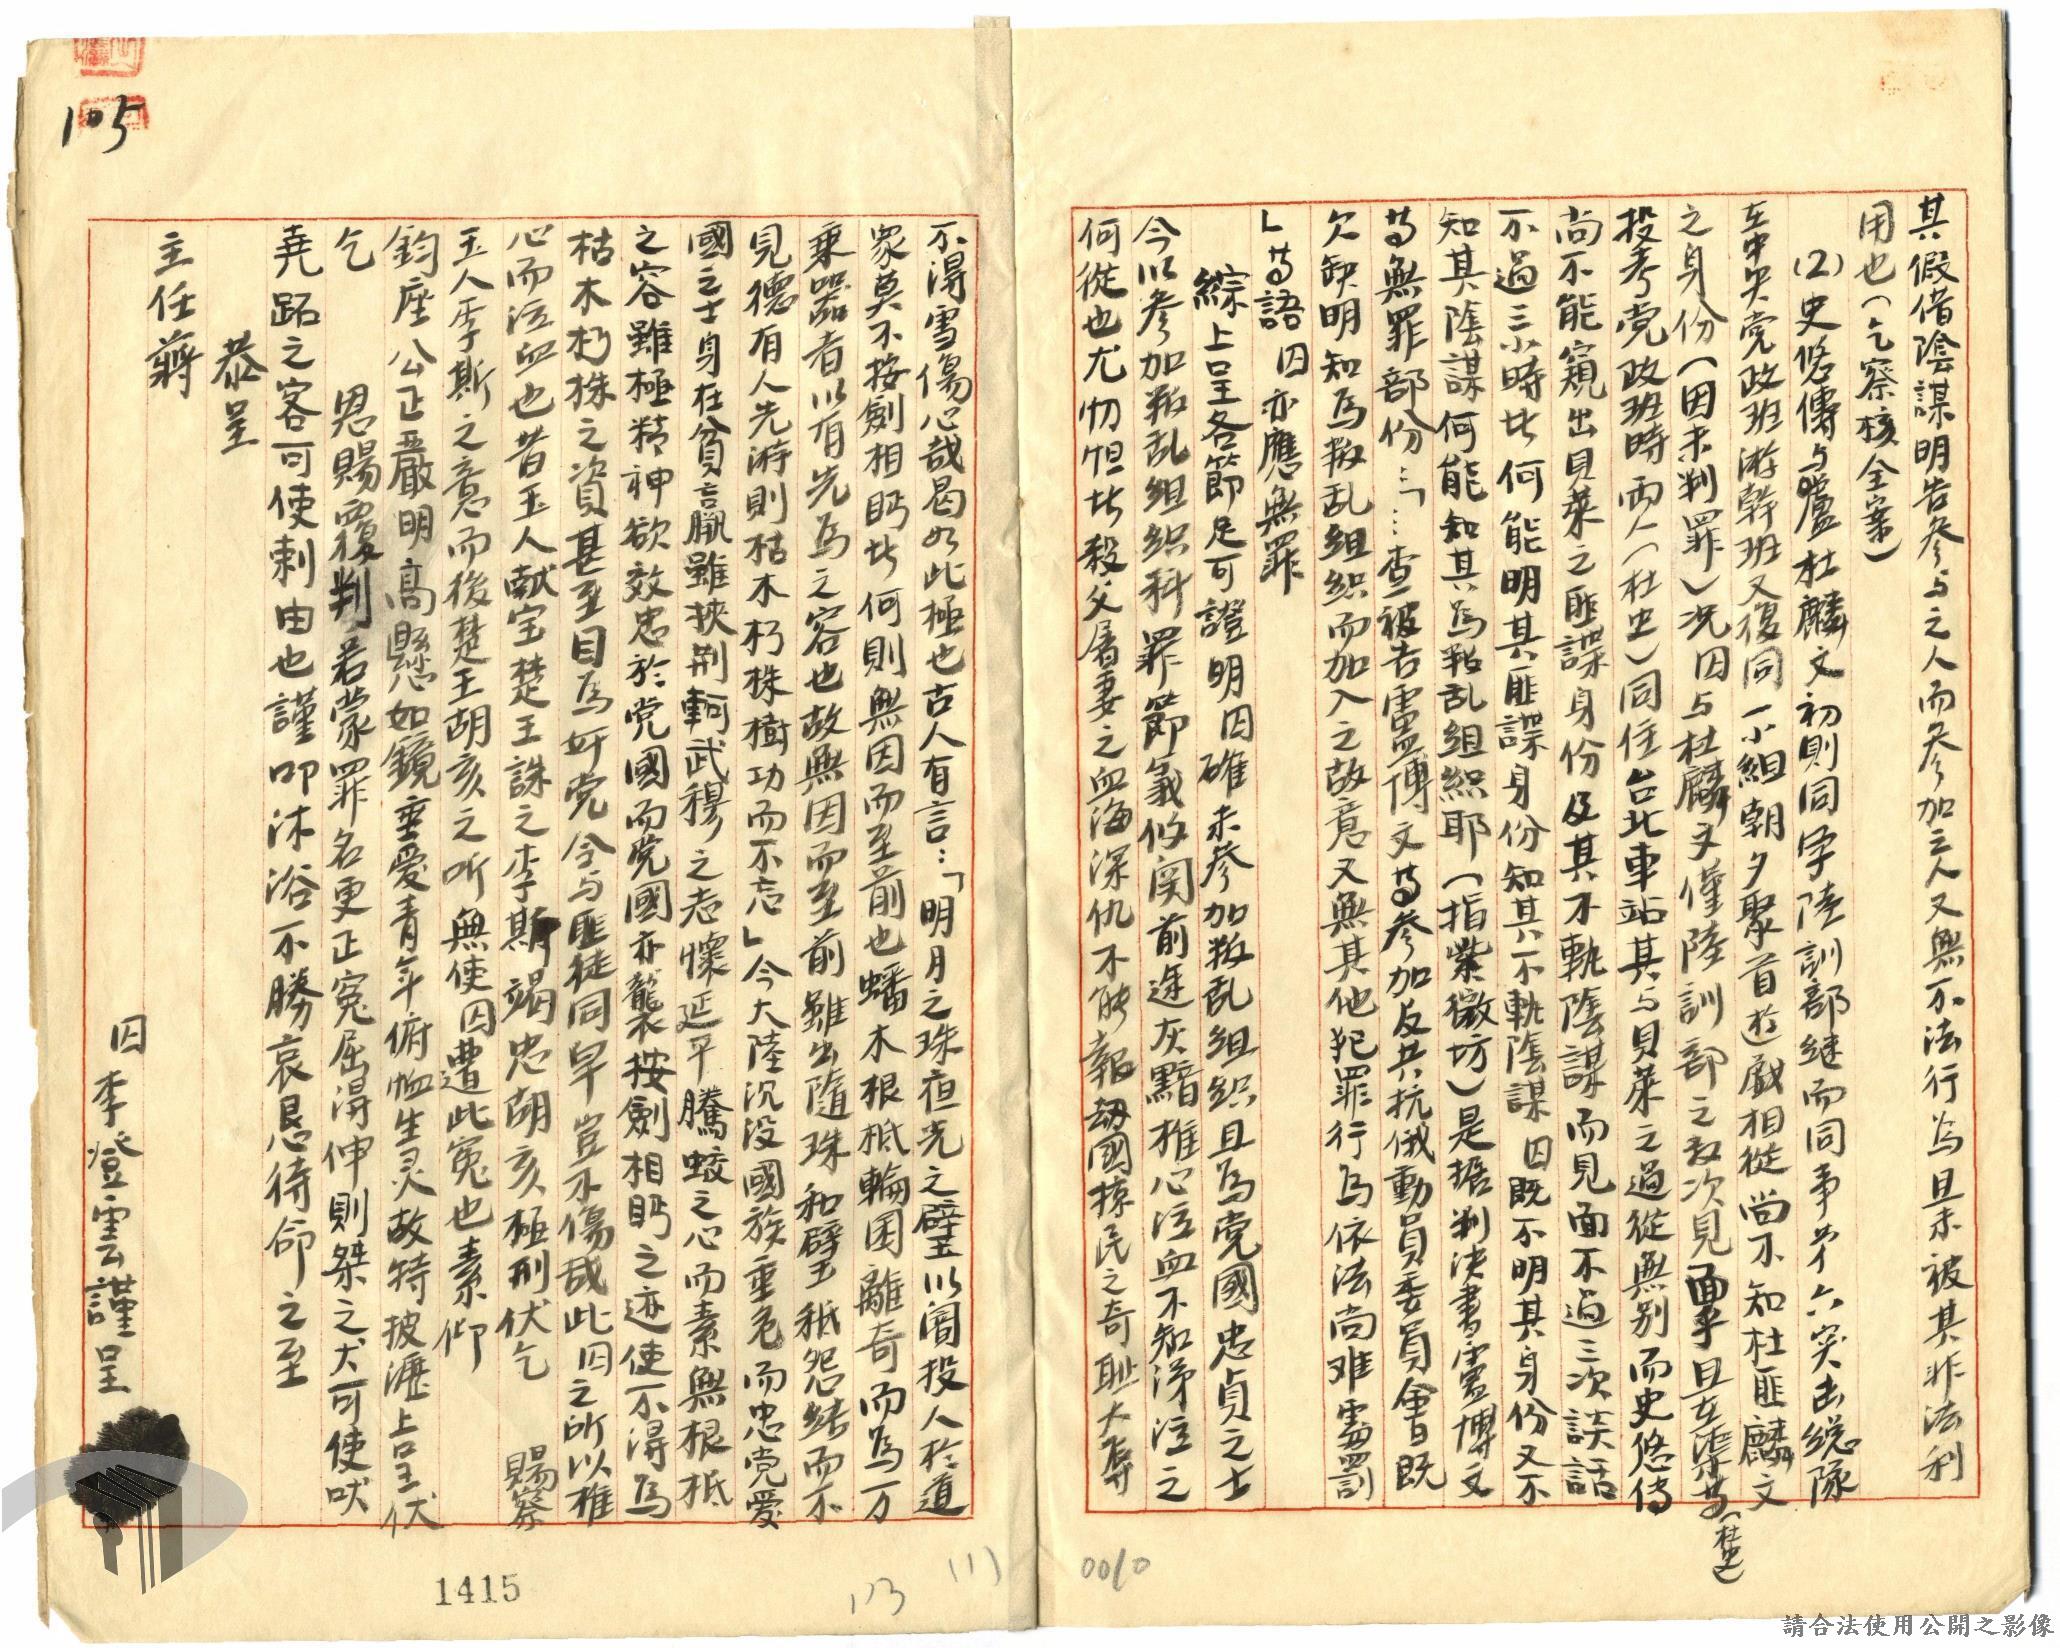 其假借陰謀明告参与之人而参加之人又無不法行為且未被其非法利
用也(乞察核全案)
(2)史悠傳与盧杜麟文初則同学陸訓部继而同事第六突击総隊
在中央党政班游幹班又復同一小組朝夕聚首遊戯相從尚不知杜匪麟文
之身份(因未判罪)况囚与杜麟文僅陸訓部之数次見面乎且在渠等(杜史)
投考党政班時兩人(杜史)同住台北車站其与貝萊之過從無别而史悠傳
尚不能窺出貝萊之匪諜身份及其不軌陰謀而見面不過三次談話
不過三小時此何能明其匪諜身份知其不軌陰謀囚既不明其身份又不
知其陰謀何能知其為叛乱組織耶(指紫薇坊)是据判决書盧博文
等無罪部份:「…查被告盧博文等参加反共抗俄動員委員會既
欠缺明知為叛乱組織而加入之故意又無其他犯罪行為依法尚难處罰
」等語囚亦應無罪
綜上呈各節足可證明囚確未参加叛乱組织且為党國忠貞之士
今以参加叛乱組织科罪節義攸関前途灰黯椎心泣血不知涕泣之
何從也尤忉怛此殺父屠妻之血海深仇不能報刼國掠民之奇耻大辱
不得雪傷心哉曷如此極也古人有言:「明月之珠夜光之璧以闇投人於道
眾莫不按劍相眄此何則無因而至前也蟠木根柢輪囷離奇而為万
乘器者以有先為之容也故無因而至前雖出隨珠和璧玉秖怨結而不
見德有人先游則枯木朽株樹功而不忘」今大陸沉没國族垂危而忠党愛
國之士身在貧羸雖挾荆軻武穆之志懷延平騰蛟之心而素無根柢
之容雖極精神欲效忠於党國而党國亦襲按劍相眄之迹使不得為
枯木朽株之資甚至目為奸党令与匪徒同牢豈不傷哉此囚之所以椎
心而泣血也昔玉人献宝楚王誅之李斯竭忠胡亥極刑伏乞 賜察
玉人李斯之意而後楚王胡亥之听無使囚遭此寃也素仰
鈞座公正嚴明高懸如鏡垂愛青年俯恤生灵故特披瀝上呈伏
乞 恩賜覆判若蒙罪名更正寃屈得伸則桀之犬可使吠
堯跖之客可使刺由也謹叩沐浴不勝哀恳待命之至
恭呈
主任蔣
囚 李燈雲謹呈
105
1415
113
111
0010
請合法使用公開之影像